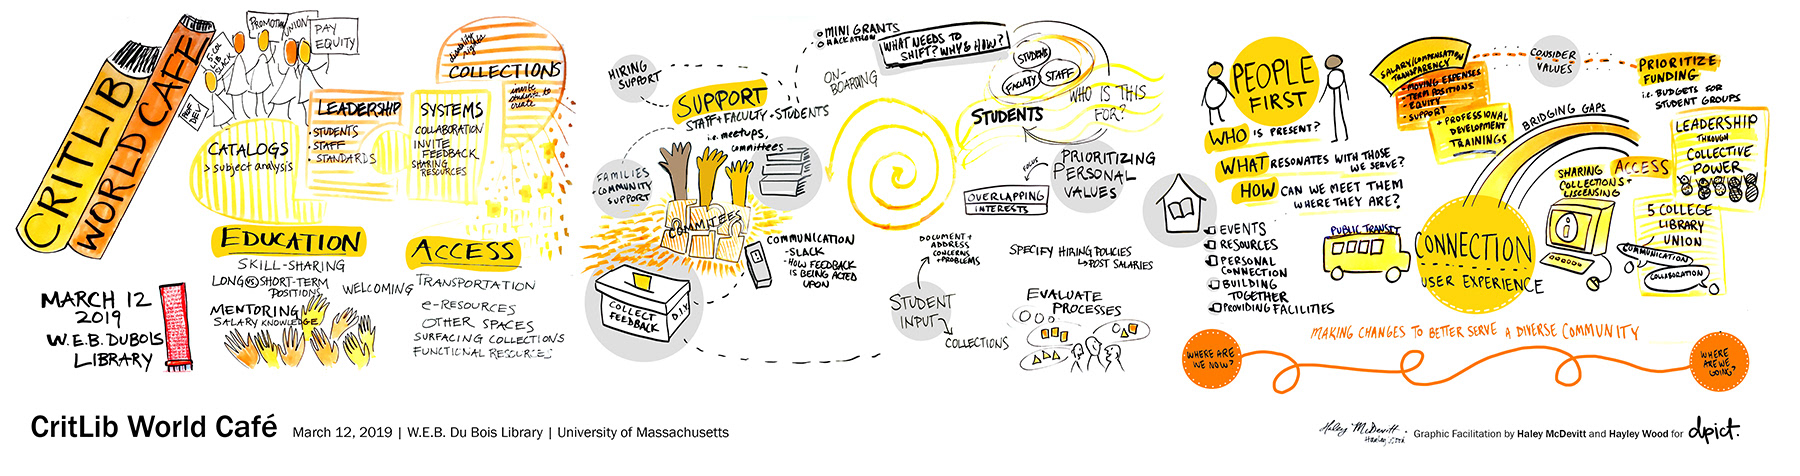 CRITLIB
WORLD CAFE
MARCH 12
2019
W.E.B. DUBOIS
LIBRARY
5-COL
LIB
SLACK
PROMOTION
UNION
PAY
EQUITY
CATALOGS
> subject analysis
LEADERSHIP
• STUDENTS
• STAFF
• STANDARDS
SYSTEMS
COLLABORATION
INVITE
FEEDBACK
SHARING
RESOURCES
disability
rights
COLLECTIONS
invite
students to
create
EDUCATION
SKILL-SHARING
LONG VS SHORT-TERM
POSITIONS
MENTORING
SALARY KNOWLEDGE
WELCOMING
ACCESS
TRANSPORTATION
e-RESOURCES
OTHER SPACES
SURFACING COLLECTIONS
FUNCTIONAL RESOURCES
HIRING
SUPPORT
SUPPORT
STAFF + FACULTY + STUDENTS
i.e. meetups,
committees
FAMILIES
+ COMMUNITY
SUPPORT
COMMITTEES
COLLECT
FEEDBACK
D.I.V.
COMMUNICATION
- SLACK
- HOW FEEDBACK
IS BEING ACTED
UPON
MINI GRANTS
HACKATHON
ON-
BOARDING
WHAT NEEDS TO
SHIFT? WHY & HOW?
STUDENTS
FACULTY
STAFF
STUDENTS
WHO IS THIS
FOR?
PRIORITIZING
PERSONAL
VALUES
OVERLAPPING
INTERESTS
DOCUMENT +
ADDRESS
CONCERNS
+ PROBLEMS
STUDENT
INPUT
COLLECTIONS
SPECIFY HIRING POLICIES
↳ POST SALARIES
EVALUATE
PROCESSES
PEOPLE
FIRST
WHO IS PRESENT?
WHAT RESONATES WITH THOSE
WE SERVE?
HOW CAN WE MEET THEM
WHERE THEY ARE?
EVENTS
RESOURCES
PERSONAL
CONNECTION
BUILDING
TOGETHER
PROVIDING FACILITIES
PUBLIC TRANSIT
SALARY/COMPENSATION
TRANSPARENCY
• MOVING EXPENSES
• TERM POSITIONS
EQUITY
• SUPPORT
+ PROFESSIONAL
DEVELOPMENT
TRAININGS
CONSIDER
VALUES
PRIORITIZE
FUNDING
i.e. BUDGETS FOR
STUDENT GROUPS
BRIDGING GAPS
CONNECTION
USER EXPERIENCE
SHARING
COLLECTIONS +
LISCENSING
ACCESS
i
LEADERSHIP
THROUGH
COLLECTIVE
POWER
5 COLLEGE
LIBRARY
UNION
COMMUNICATION
COLLABORATION
MAKING CHANGES TO BETTER SERVE A DIVERSE COMMUNITY
WHERE ARE
WE NOW?
WHERE
ARE WE
GOING?
CritLib World Café March 12, 2019 | W.E.B. Du Bois Library | University of Massachusetts
Haley McDevitt
Hayley Wood
Graphic Facilitation by Haley McDevitt and Hayley Wood for dpict.